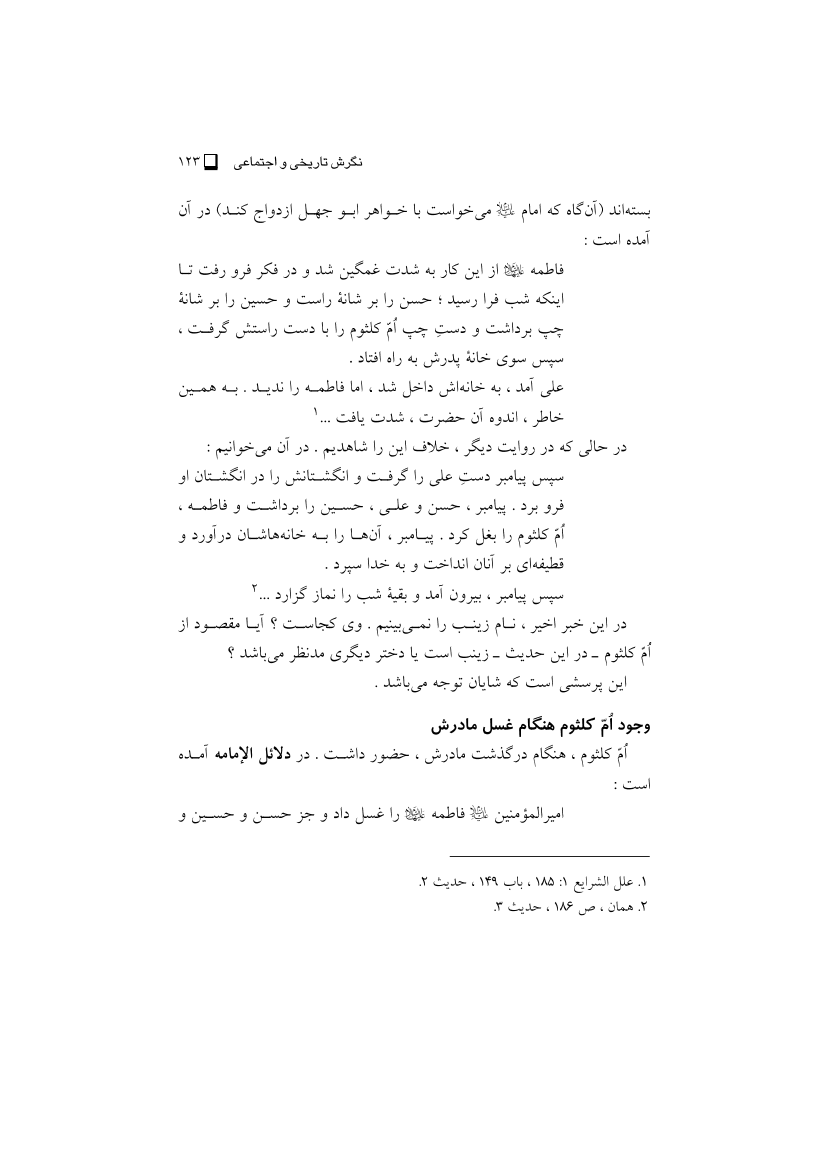 نگرش تاریخی و اجتماعی ❏ ۱۲۳
بسته‌اند (آن‌گاه که امام می‌خواست با خـواهر ابـو جهـل ازدواج کنـد) در آن
آمده است :
فاطمه از این کار به شدت غمگین شد و در فکر فرو رفت تـا
اینکه شب فرا رسید ؛ حسن را بر شانۀ راست و حسین را بر شانۀ
چپ برداشت و دستِ چپ اُمّ کلثوم را با دست راستش گرفـت ،
سپس سوی خانۀ پدرش به راه افتاد .
علی آمد ، به خانه‌اش داخل شد ، اما فاطمـه را ندیـد . بـه همـین
خاطر ، اندوه آن حضرت ، شدت یافت ...۱
در حالی که در روایت دیگر ، خلاف این را شاهدیم . در آن می‌خوانیم :
سپس پیامبر دستِ علی را گرفـت و انگشـتانش را در انگشـتان او
فرو برد . پیامبر ، حسن و علـی ، حسـین را برداشـت و فاطمـه ،
اُمّ کلثوم را بغل کرد . پیـامبر ، آن‌هـا را بـه خانه‌هاشـان درآورد و
قطیفه‌ای بر آنان انداخت و به خدا سپرد .
سپس پیامبر ، بیرون آمد و بقیۀ شب را نماز گزارد ...۲
در این خبر اخیر ، نـام زینـب را نمـی‌بینیم . وی کجاسـت ؟ آیـا مقصـود از
اُمّ کلثوم ـ در این حدیث ـ زینب است یا دختر دیگری مدنظر می‌باشد ؟
این پرسشی است که شایان توجه می‌باشد .
وجود اُمّ کلثوم هنگام غسل مادرش
اُمّ کلثوم ، هنگام درگذشت مادرش ، حضور داشـت . در دلائل الإمامه آمـده
است :
امیرالمؤمنین فاطمه را غسل داد و جز حسـن و حسـین و
۱. علل الشرایع ۱: ۱۸۵ ، باب ۱۴۹ ، حدیث ۲.
۲. همان ، ص ۱۸۶ ، حدیث ۳.